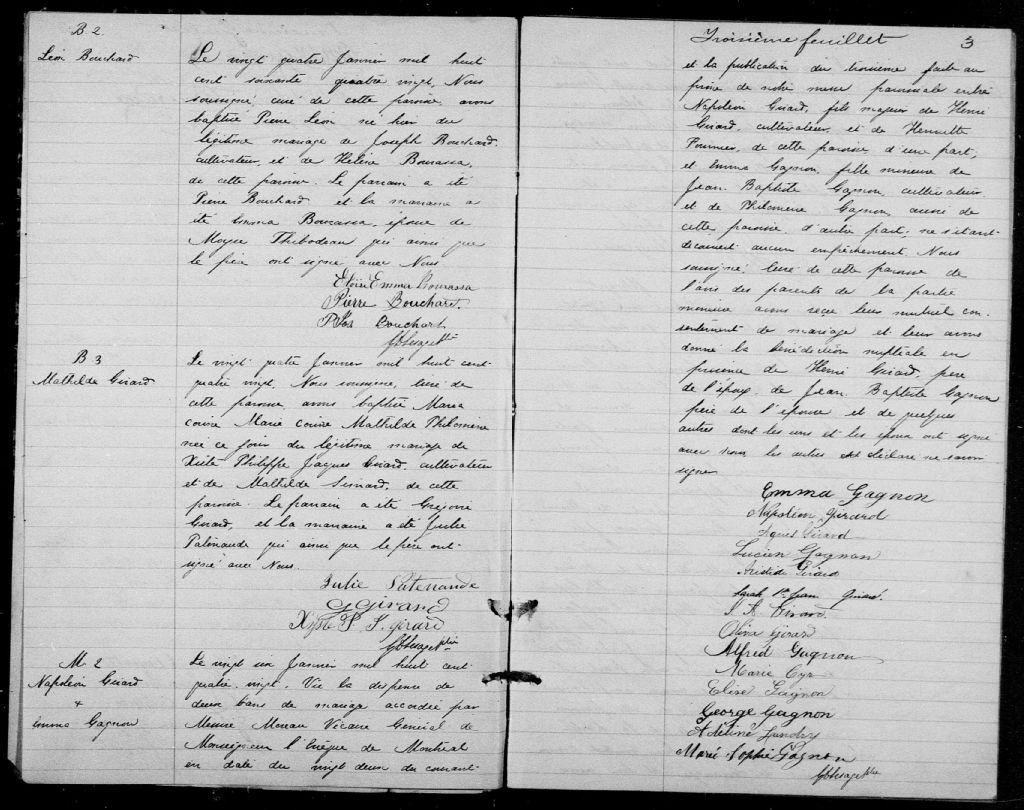 B 2
Léon Bouchard
Le vingt quatre Janvier mil huit
cent soixante quatre vingt, Nous
soussigné, curé de cette paroisse, avons
baptisé Pierre Léon né hier du
légitime mariage de Joseph Bouchard
cultivateur, et de Hélène Bourassa,
de cette paroisse. Le parrain a été
Pierre Bouchard et la marraine a
été Emma Bourassa, épouse de
Moyse Thibodeau qui ainsi que
le père ont signé avec Nous.
Emma Bourassa
Pierre Bouchard.
Bouchart
B 3
Mathilde Girard
Le vingt quatre Janvier mil huit cent
quatre vingt, Nous soussigné, curé de
cette paroisse avons baptisé Maria
Marie Mathilde Philomène
née ce jour du légitime mariage de
Xiste Philippe Jacques Girard, cultivateur
et de Mathilde, de cette
paroisse. Le parrain a été Grégoire
Girard, et la marraine a été Julie
Patenaude qui ainsi que le père ont
signé avec Nous.
Julie Patenaude
G Girard
Xyste P. J. Girard
M 2
Napoléon Girard
+
Emma Gagnon
Le vingt six Janvier mil huit cent
quatre vingt, Vu la dispense de
deux bans de mariage accordée par
Messire Moreau Vicaire Général de
Monseigneur l'Evêque de Montréal
en date du vingt deux du courant
Troisième feuillet
3
et la publication du troisième faite au
prône de notre messe paroissiale entre
Napoléon Girard, fils majeur de Henri
Girard, cultivateur, et de Henriette
Fournier, de cette paroisse d'une part,
et Emma Gagnon, fille mineure de
Jean Baptiste Gagnon cultivateur
et de Philomène Gagnon aussi de
cette paroisse, d'autre part, ne s'étant
découvert aucun empêchement, Nous
soussigné, curé de cette paroisse de
l'avis des parents de la partie
mineure avons reçu leur mutuel con
sentement de mariage et leur avons
donné la bénédiction nuptiale en
présence de Henri Girard, père
de l'époux, de Jean Baptiste Gagnon
père de l'épouse et de quelques
autres dont les uns et les époux ont signé
avec nous les autres ont déclaré ne savoir
signer
Emma Gagnon
Napoléon Girard
Agnes Girard
Lucien Gagnon
Aristide Girard
Sarah Girard.
Girard.
Olina Girard
Alfred Gagnon
Marie Cyr
Elise Gagnon
George Gagnon
Adéline Landry
Marie Sophie Gagnon